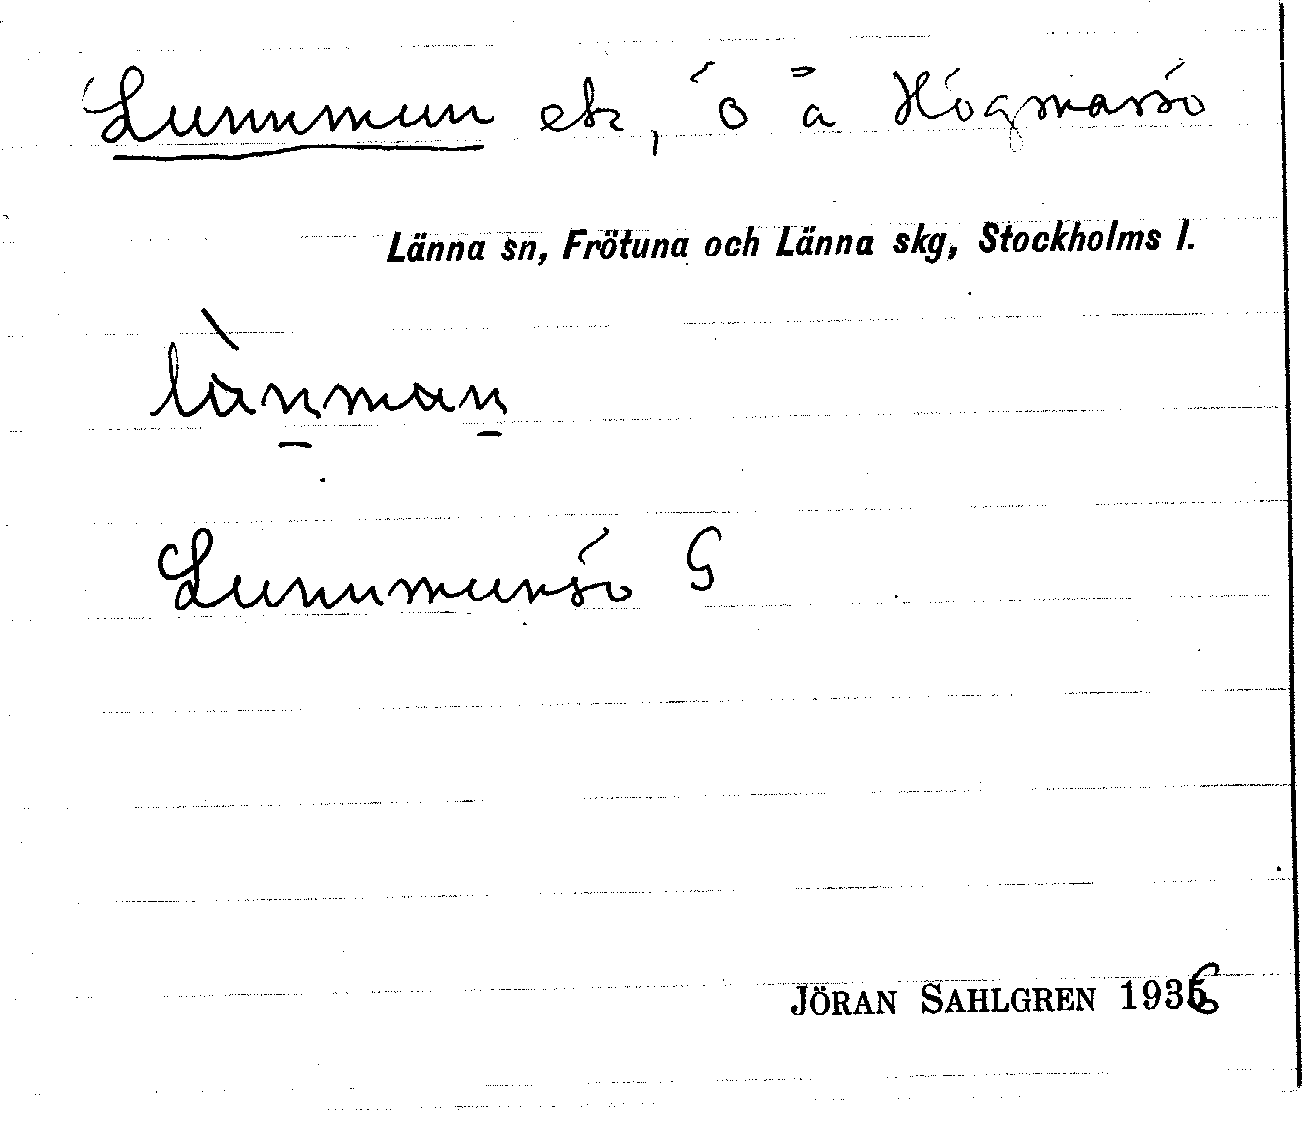 Lunnmun ek, ö å Högmarsö
Länna sn, Frötuna och Länna skg, Stockholms l.
lànman
Lunnmunsö G
JÖRAN SAHLGREN 1936